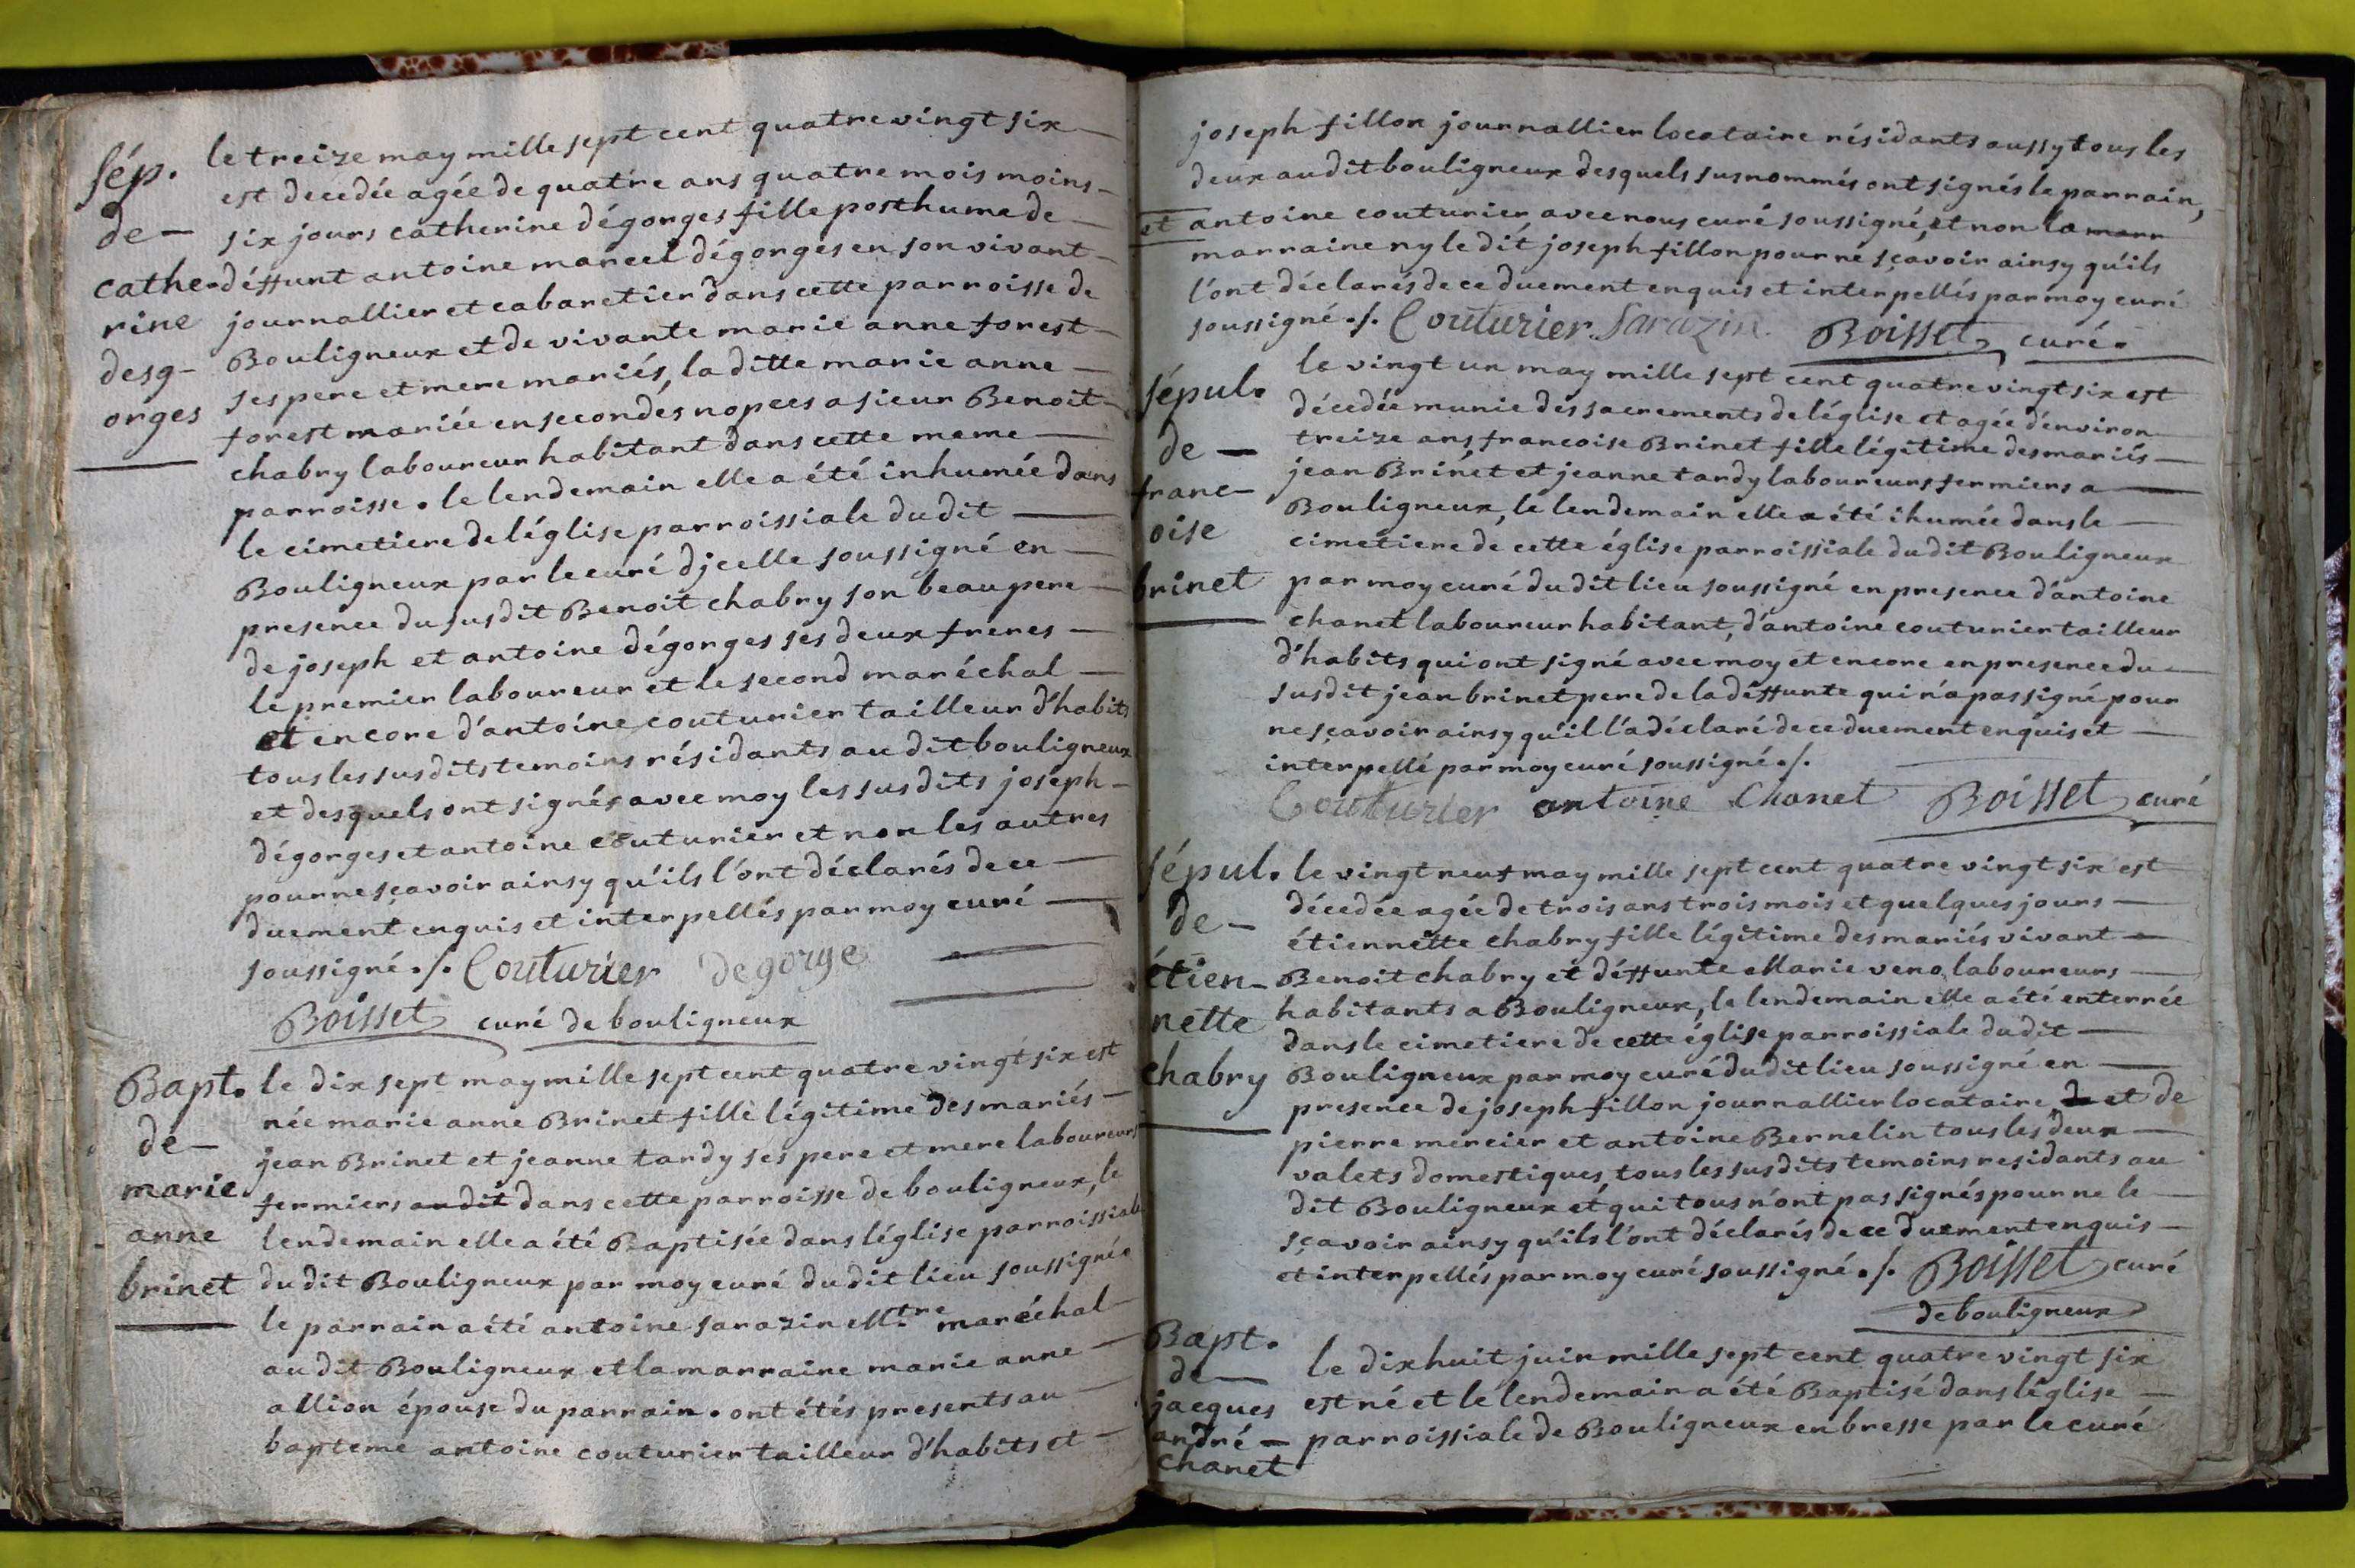 sép.
de —
cathe-
rine
desg-
orges
le treize may mille sept cent quatre vingt six —
est decedée agée de quatre ans quatre mois moins —
six jours catherine dégorges fille posthume de —
déffunt antoine marcel dégorges en son vivant —
journallier et cabaretier dans cette parroisse de
Bouligneux et de vivante marie anne forest —
ses pere et mere mariés, la ditte marie anne —
forest mariée en secondes nopces a sieur Benoit —
chabry laboureur habitant dans cette meme —
parroisse. le lendemain elle a été inhumée dans
le cimetiere de l'église parroissiale du dit —
Bouligneux par le curé djcelle soussigné en —
presence du susdit Benoit chabry son beau pere —
de joseph et antoine dégorges ses deux freres —
le premier laboureur et le second maréchal —
et encore d'antoine couturier tailleur d'habits
tous les susdits temoins résidants au dit bouligneux
et desquels ont signés avec moy les susdits joseph —
dégorges et antoine couturier et non les autres
pour ne sçavoir ainsy qu'ils l'ont déclarés de ce —
duement enquis et interpellés par moy curé —
soussigné ./. Couturier degorge
Boisset curé de bouligneux
Bapt.
de —
marie
anne
brinet
le dix sept may mille sept cent quatre vingt six est
née marie anne Brinet fille légitime des mariés —
jean Brinet et jeanne tardy ses pere et mere laboureurs
fermiers au dit dans cette parroisse de bouligneux, le
lendemain elle a été Baptisée dans l'église parroissiale
du dit Bouligneux par moy curé du dit lieu soussigné
le parrain a été antoine sarazin M.tre maréchal —
au dit Bouligneux et la marraine marie anne —
allion épouse du parrain. ont étés presents au —
bapteme antoine couturier tailleur d'habits et —
joseph fillon journallier locataire résidants aussy tous les
deux au dit bouligneux desquels susnommés ont signés le parrain,
et antoine couturier, avec nous curé soussigné, et non la marr
marraine ny le dit joseph fillon pour ne sçavoir ainsy qu'ils
l'ont déclarés de ce duement enquis et interpellés par moy curé
soussigné ./. Couturier Sarazin Boisset curé.
sépul.
de —
franc-
oise
brinet
le vingt un may mille sept cent quatre vingt six est
décedée munie des sacrements de l'église et agée d'environ
treize ans francoise Brinet fille légitime des mariés —
jean Brinet et jeanne tardy laboureurs fermiers a —
Bouligneux, le lendemain elle a été ihumée dans le —
cimetiere de cette église parroissiale du dit Bouligneux
par moy curé du dit lieu soussigné en presence d'antoine
chanet laboureur habitant, d'antoine couturier tailleur
d'habits qui ont signé avec moy et encore en presence du —
susdit jean brinet pere de la déffunte qui n'a pas signé pour
ne sçavoir ainsy qu'il l'a déclaré de ce duement enquis et —
interpellé par moy curé soussigné ./.
Couturier antoine Chanet Boisset curé
sépul.
de —
étien-
nette
chabry
le vingt neuf may mille sept cent quatre vingt six est
décedée agée de trois ans trois mois et quelques jours —
étiennette chabry fille légitime des mariés vivant —
Benoit chabry et déffunte Marie veno laboureurs —
habitants a Bouligneux, le lendemain elle a été enterrée
dans le cimetiere de cette église parroissiale du dit —
Bouligneux par moy curé du dit lieu soussigné en —
presence de joseph fillon journallier locataire de et de
pierre mercier et antoine Bernelin tous les deux —
valets domestiques, tous les susdits temoins residants au
dit Bouligneux et qui tous n'ont pas signés pour ne le —
sçavoir ainsy qu'ils l'ont déclarés de ce duement enquis —
et interpellés par moy curé soussigné ./. Boisset curé
de bouligneux
Bapt.
de —
jacques
andré —
chanet
le dix huit juin mille sept cent quatre vingt six
est né et le lendemain a été Baptisé dans l'église —
parroissiale de Bouligneux en bresse par le curé